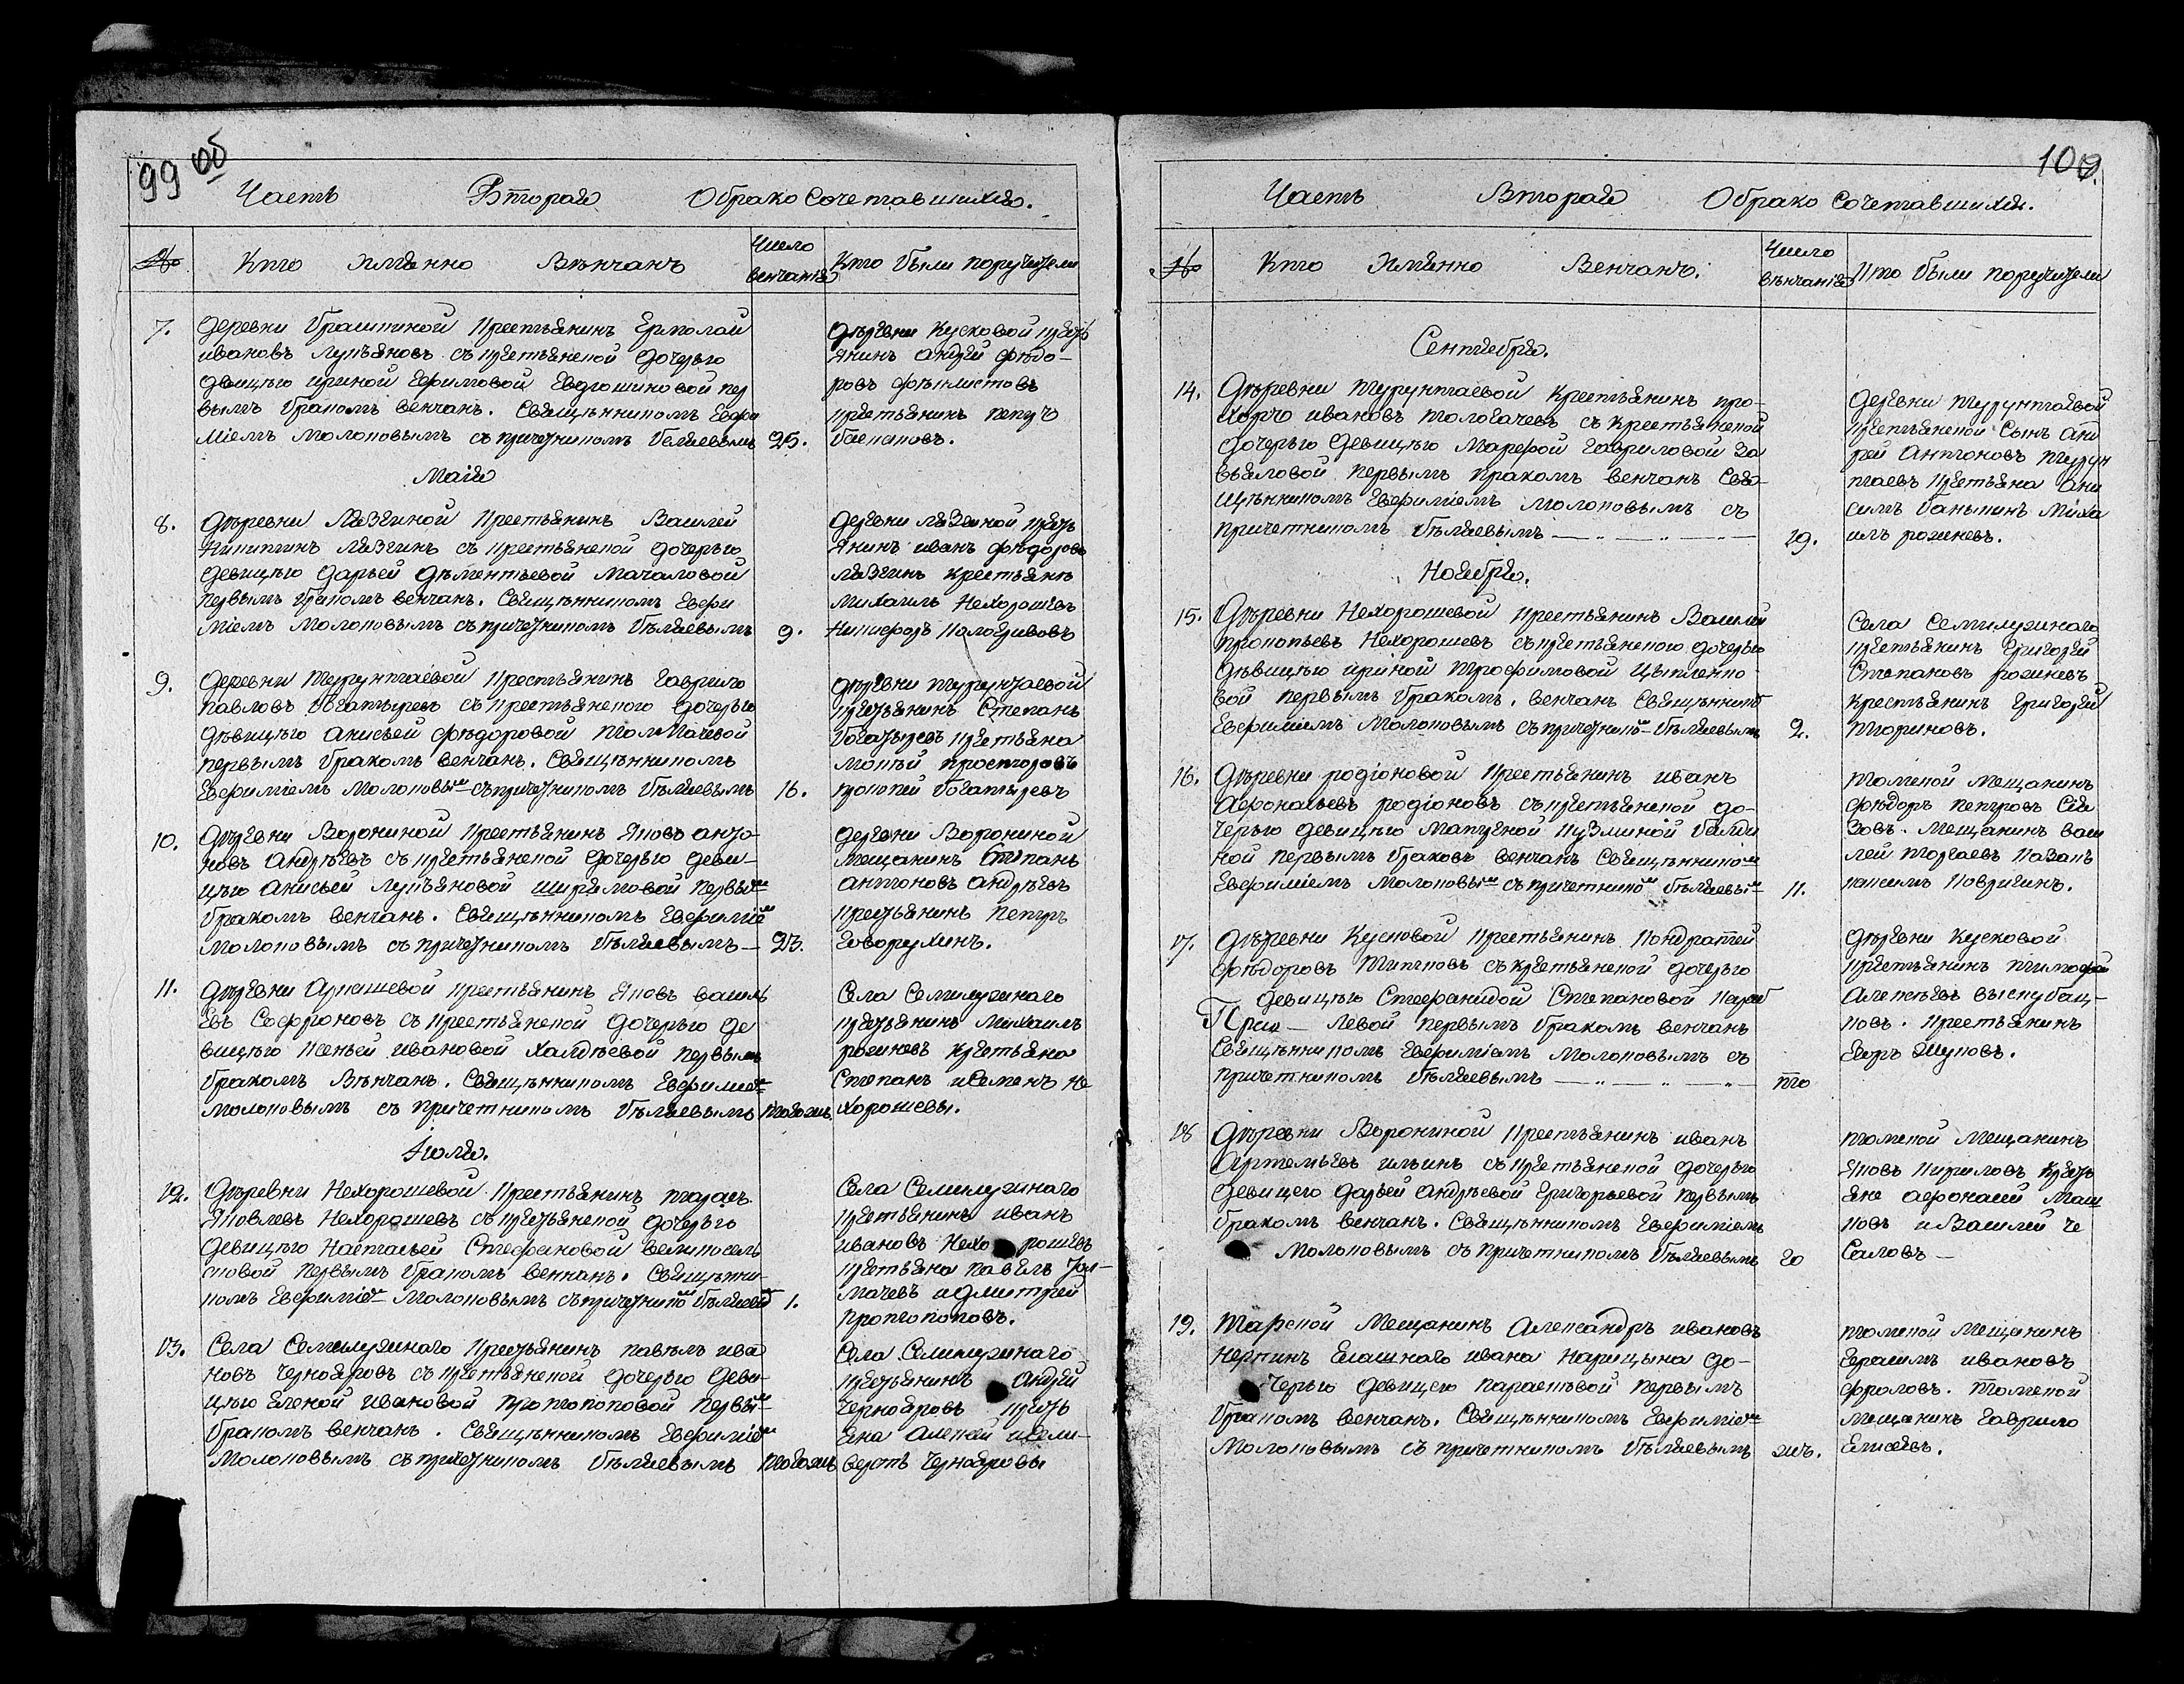 99 об
Часть Вторая О брако Сочетавшихся.
№ Кто имянно Вѣнчанъ Число венчанія Кто были поручители
7. деревни брашкиной Крестьянинъ Ермолай
ивановъ лукьяновъ съ крестьянской дочерью
девицею ириной Ефимовой Евдошиковой пер
вымъ бракомъ венчанъ. Священникомъ Евфи
міемъ Молоковымъ съ причетникомъ беляевымъ 25.
дѣревни Кусковой крестъ
янинъ андрей фѣдо-
ровъ
крестьянинъ петръ
Маія
8. дѣревни Лязгиной Крестьянинъ Василей
Никитинъ лязгинъ съ крестьянской дочерью
девицею дарьей дѣментьевой Мачаловой
первымъ бракомъ венчанъ. Священникомъ Евфи
міемъ Молоковымъ съ причетникомъ бѣляевымъ 9.
деревни лязгиной кресть
янинъ иванъ фѣдоровъ
лязгинъ крестьяне
Михаилъ Нехорошевъ
Никифоръ
9. деревни Турунтаевой Крестьянинъ гаврило
павловъ богатыревъ съ крестьянскою дочерью
дѣвицею анисьей фѣдоровой толмачевой
первымъ бракомъ венчанъ. Священникомъ
Евфиміемъ Молоковым съ причетникомъ бѣляевымъ 16.
дѣревни турунтаевой
крестьянинъ Степанъ
богатыревъ крестьяна
прокопей богатыревъ
10. дѣревни Ворониной Крестьянинъ Яковъ анто-
новъ андрѣевъ съ крестьянской дочерью деви-
цею анисьей лукьяновой ширямовой первым
бракомъ венчанъ. Священникомъ Евфиміем
Молоковымъ съ причетникомъ бѣляевымъ — 23.
деревни Ворониной
Мещанинъ Степанъ
антоновъ андрѣевъ
Крестьянинъ петръ
говорухинъ.
11. дѣревни Аркашевой крестьянинъ Яковъ василь
евъ Софроновъ съ крестьянской дочерью де
вицею Ксеньей ивановой Халдѣевой первымъ
бракомъ Вѣнчанъ. Священникомъ Евфимием
Молоковымъ съ причетникомъ бѣляевымъ тогожъ
Села Семилужнаго
крестьянинъ Михаилъ
рожневъ крестьяна
Степанъ и Семенъ Не
хорошевы.
Іюля.
12. дѣревни Нехорошевой Крестьянинъ тарасъ
Яковлевъ Нехорошевъ съ крестьянской дочерью
девицею Настасьей Стефановой великосель
ской первымъ бракомъ венчанъ. Священни-
комъ Евфиміем Молоковымъ съ причетником бѣляев 1.
Села Семилужнаго
крестьянинъ иванъ
ивановъ Нехорошевъ
крестьяна павелъ тол-
мачевъ и дмитрей
протопоповъ.
13. Села Семилужнаго Крестьянинъ павелъ ива
новъ Чернояровъ съ крестьянской дочерью деви-
цею Еленой ивановой протопоповой первым
бракомъ венчанъ. Священникомъ Евфиміем
Молоковымъ съ причетникомъ бѣляевымъ тогожъ
Села Семилужнаго
крестьянинъ андрей
Чернояровъ кресть
яна алексей и сели-
верстъ Чернояровы
100.
Часть Вторая О брако Сочетавшихся.
№ Кто Имянно Венчанъ. Число вѣнчанія Кто были поручители
Сентября.
14. Дѣревни турунтаевой Крестьянинъ про-
хоръ ивановъ толмачевъ съ крестьянской
дочерью девицею Марфой гавриловой за
вьяловой первымъ бракомъ венчанъ Свя-
щенникомъ Евфиміемъ Молоковымъ съ
причетникомъ бѣляевымъ — „ — „ — 29.
деревни турунтаевой
крестьянской Сынъ анд
рей Антоновъ турун
таевъ крестьяна ани
симъ Миха
илъ рожневъ.
Ноября.
15. Дѣревни Нехорошевой Крестьянинъ Василей
прокопьевъ Нехорошевъ съ крестьянскою дочерью
дѣвицею ириной трофимовой Цыпленко-
вой первымъ бракомъ. венчанъ Священником
Евфиміемъ Молоковымъ съ причетником бѣляевымъ 2.
Села Семилужнаго
крестьянинъ григорей
Степановъ рожневъ
крестьянинъ григорей
16. Дѣревни родіоновой Крестьянинъ иванъ
Афонасьевъ родіоновъ съ крестьянской до-
черью девицею Матреной Кузминой
ной первымъ браковъ венчанъ Священником
Евфиміемъ Молоковым съ причетником бѣляевым 11.
томской Мещанинъ
фѣдоръ петровъ Ся
зовъ. Мещанинъ васи
лей
17. Дѣревни Кусковой Крестьянинъ Кондратей
фѣдоровъ съ крестьянской дочерью
девицею Стефанидой Степановой
левой первымъ бракомъ венчанъ
Священникомъ Евфиміемъ Молоковымъ съ
причетникомъ бѣляевымъ — „ — „ — „ — то
дѣревни Кусковой
крестьянинъ тимофей
Алексѣевъ
ковъ. крестьянинъ
Егоръ
18 Дѣревни Ворониной Крестьянинъ иванъ
Артемьевъ ильинъ съ крестьянской дочерью
девицею дарьей андрѣевой григорьевой первымъ
бракомъ венчанъ. Священникомъ Евфиміемъ
Молоковымъ съ причетникомъ бѣляевымъ го
томской Мещанинъ
Яковъ Кириловъ кресть
яне афонасей
ковъ и Василей Че
саловъ —
19. тарской Мещанинъ Александръ ивановъ
ивана Карицына до-
черью девицею параскѣвой первымъ
бракомъ венчанъ. Священникомъ Евфиміем
Молоковымъ съ причетникомъ бѣляевымъ жъ.
томской Мещанинъ
герасимъ ивановъ
фроловъ. томской
мещанинъ гаврило
Елисеевъ.